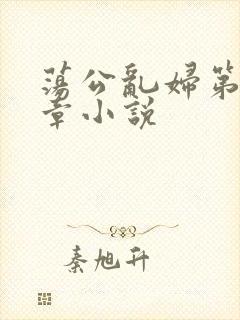 蕩公亂婦第
章小說
秦旭升